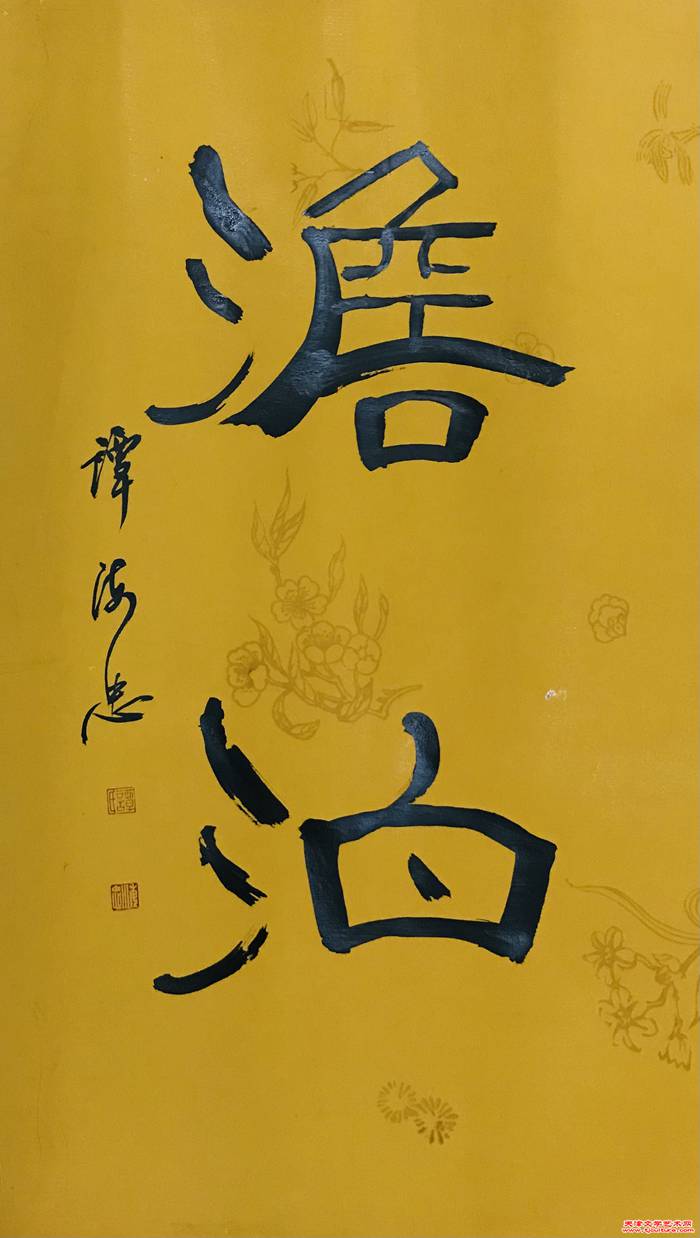 澹泊
譚海忠
天津文学艺术网
www.tjculture.com